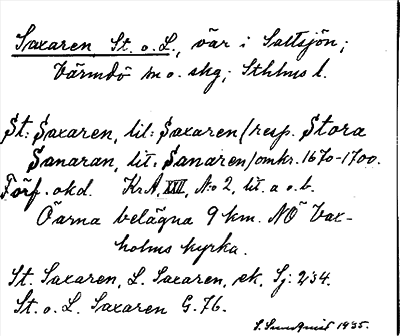 Saxaren St. o. L., öar i Saltsjön;
Värmdö m o. skg; Sthlms l.
St: Saxaren, lil: Saxaren (resp. Stora
Sanaran, lit: Sanaren) omkr. 1670-1700.
Förf. okd. Kr.A, XXII, No 2, lit. a o. b.
Öarna belägna 9 km. NÖ Vax-
holms kyrka.
St. Saxaren, L. Saxaren, ek. Sj: 234.
St. o. L. Saxaren G. 76.
1935.